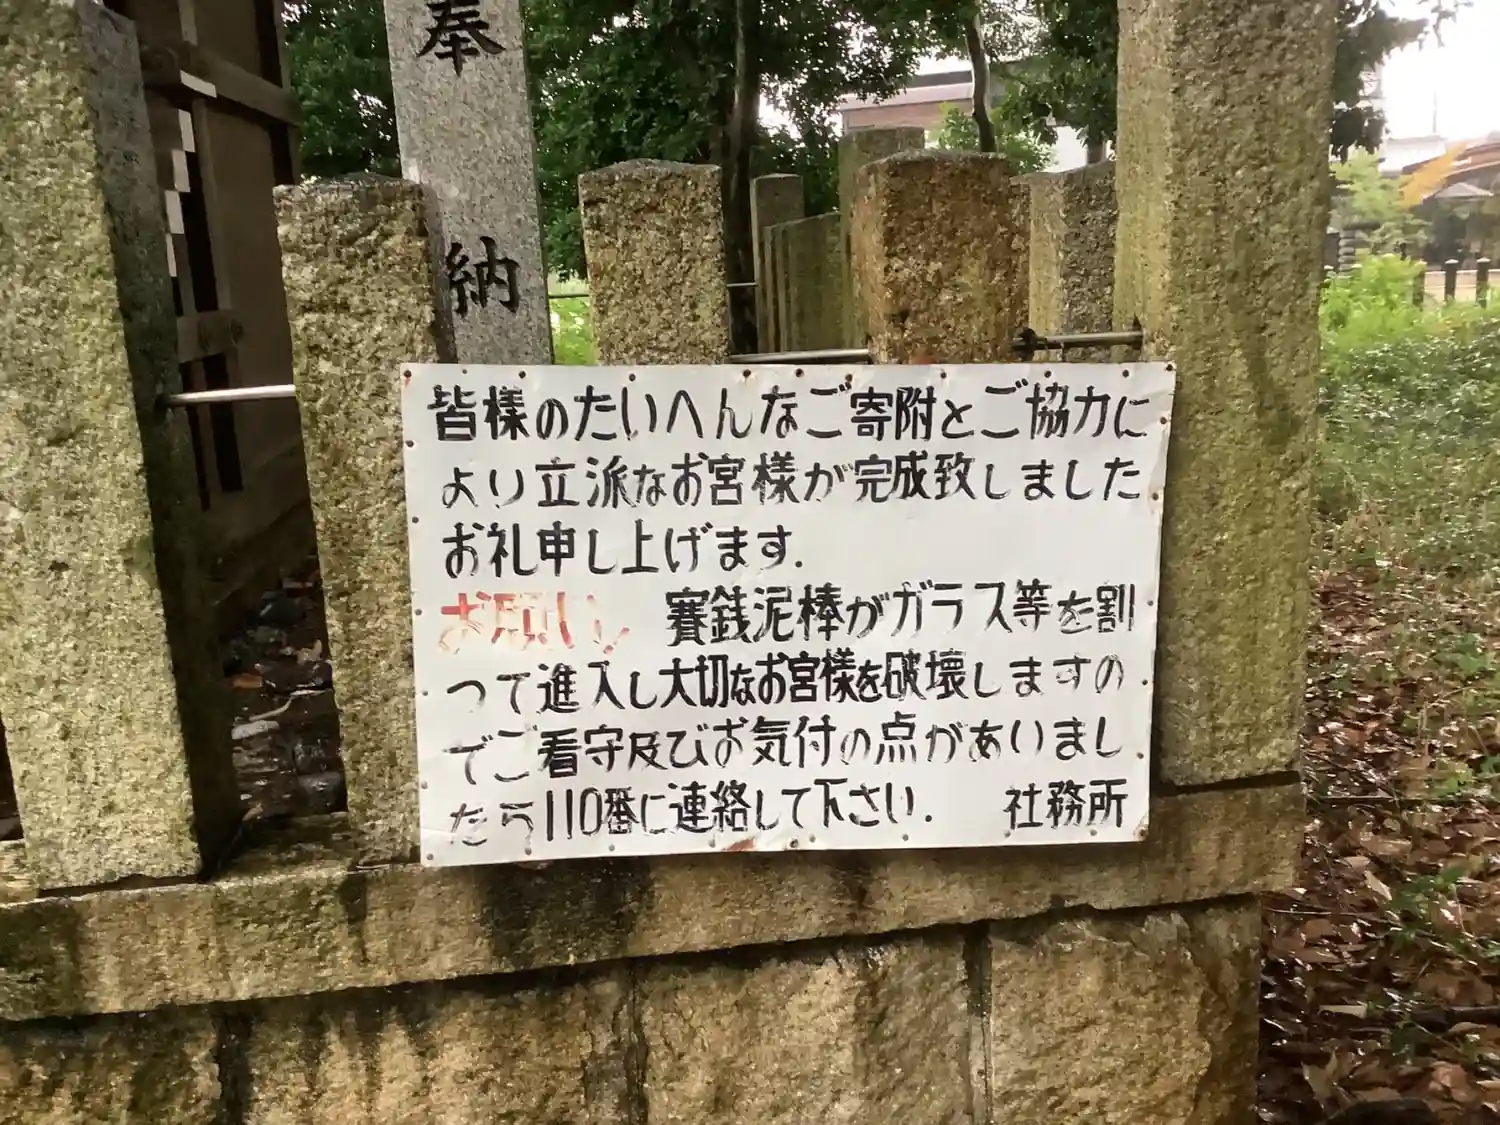 奉納
皆様のたいへんなご寄附とご協力に
より立派なお宮様が完成致しました
お礼申し上げます.
お願い! 賽銭泥棒がガラス等を割
って進入し大切なお宮様を破壊しますの
でご看守及びお気付の点がありまし
たら110番に連絡して下さい. 社務所